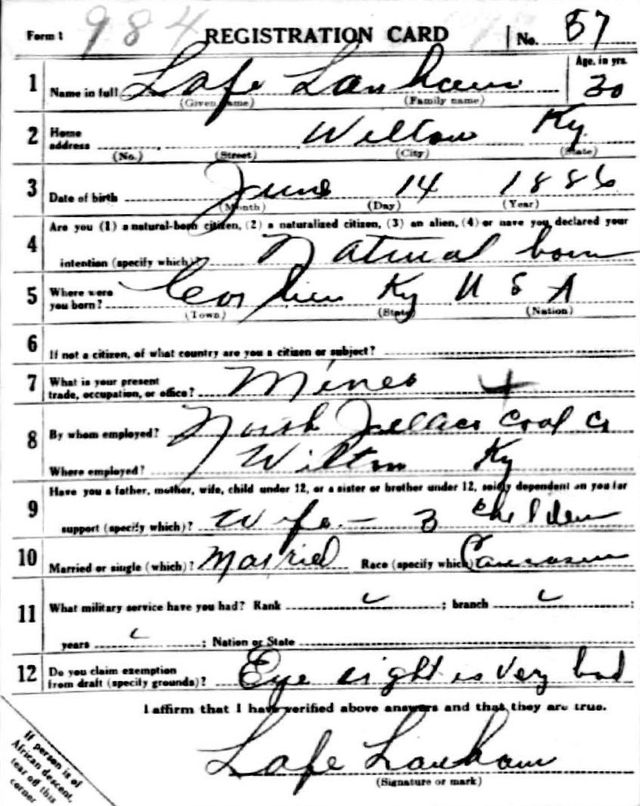 Form 1 984 REGISTRATION CARD No. 87
1 Name in full Lafe Lanham Age, in yrs. 30
(Given name) (Family name)
2 Home address Wilton Ky
(No.) (Street) (City) (State)
3 Date of birth June 14 1886
(Month) (Day) (Year)
Are you (1) a natural-born citizen, (2) a naturalized citizen, (3) an alien, (4) or have you declared your
4 intention (specify which)? Natural born
5 Where were you born? Corbin Ky U S A
(Town) (State) (Nation)
6 If not a citizen, of what country are you a citizen or subject?
7 What is your present trade, occupation, or office? Miner
8 By whom employed? North Jellico Coal Co
Where employed? Wilton Ky
Have you a father, mother, wife, child under 12, or a sister or brother under 12, solely dependent on you for
9 support (specify which)? Wife - 3 Children
10 Married or single (which)? Married Race (specify which) Caucasian
11 What military service have you had? Rank ; branch ;
years ; Nation or State
12 Do you claim exemption from draft (specify grounds)? Eye sight is very bad
I affirm that I have verified above answers and that they are true.
Lafe Lanham
(Signature or mark)
If person is of
African descent,
tear off this
corner